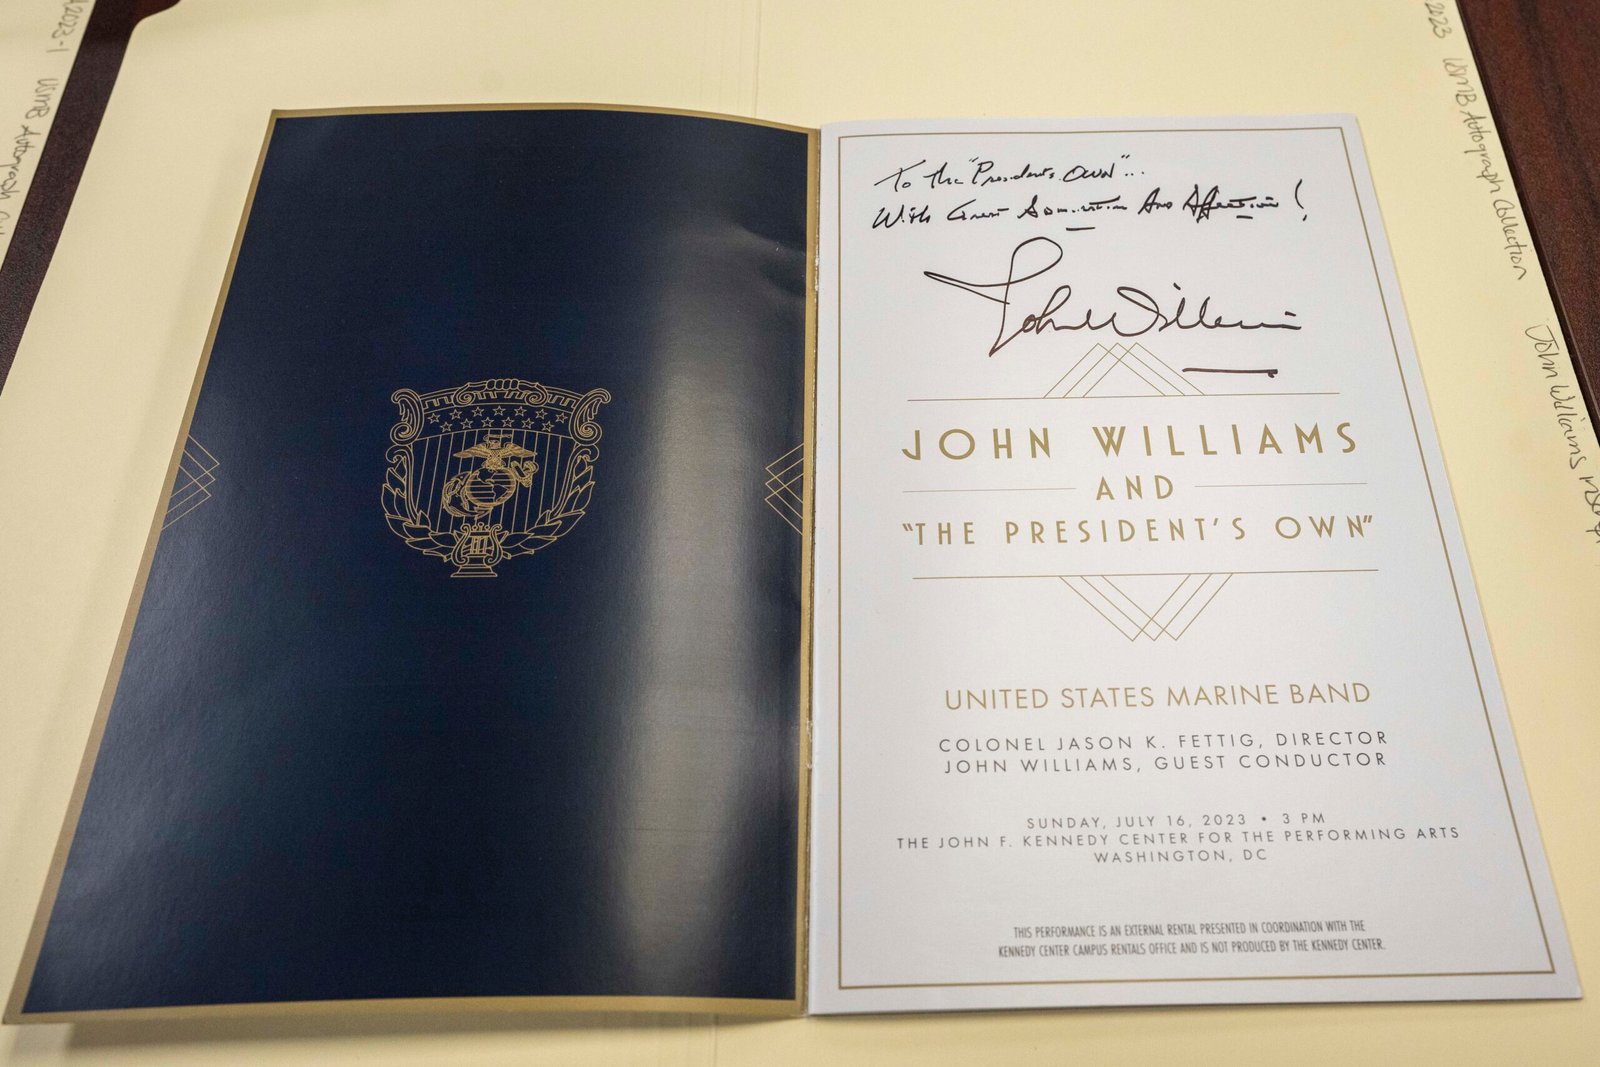 2023-1 USMB Autograph
2023 USMB Autograph Collection John Williams
To The "President's Own"...
With Great Admiration And Affection!
John Williams
JOHN WILLIAMS
AND
"THE PRESIDENT'S OWN"
UNITED STATES MARINE BAND
COLONEL JASON K. FETTIG, DIRECTOR
JOHN WILLIAMS, GUEST CONDUCTOR
SUNDAY, JULY 16, 2023 • 3 PM
THE JOHN F. KENNEDY CENTER FOR THE PERFORMING ARTS
WASHINGTON, DC
THIS PERFORMANCE IS AN EXTERNAL RENTAL PRESENTED IN COORDINATION WITH THE
KENNEDY CENTER CAMPUS RENTALS OFFICE AND IS NOT PRODUCED BY THE KENNEDY CENTER.